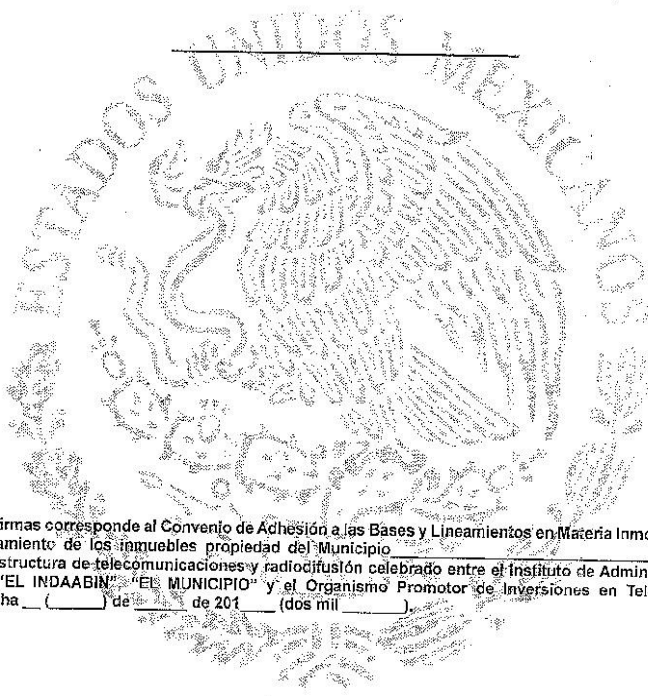 ESTADOS UNIDOS MEXICANOS
irmas corresponde al Convenio de Adhesión a las Bases y Lineamientos en Materia Inmo
amiento de los inmuebles propiedad del Municipio
structura de telecomunicaciones y radiodifusión celebrado entre el Instituto de Admin
"EL INDAABIN", "EL MUNICIPIO" y el Organismo Promotor de Inversiones en Tel
ha __ (______) de ______ de 201____ (dos mil ______).